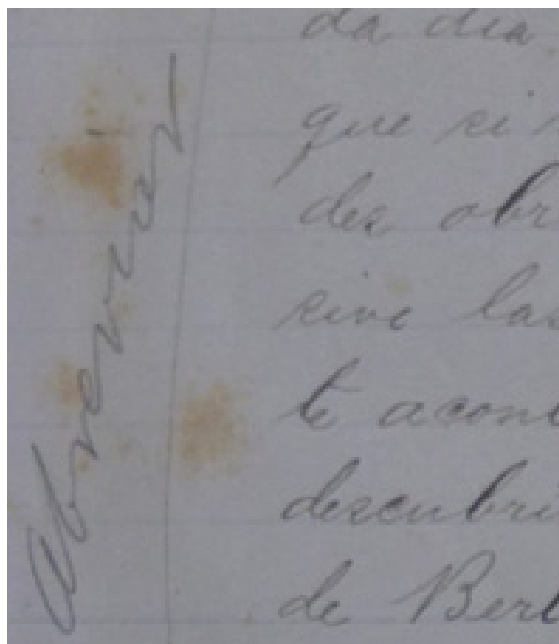 Abreviar
da dia
que si
des obr
sive las
te acont
descubri
de Berl